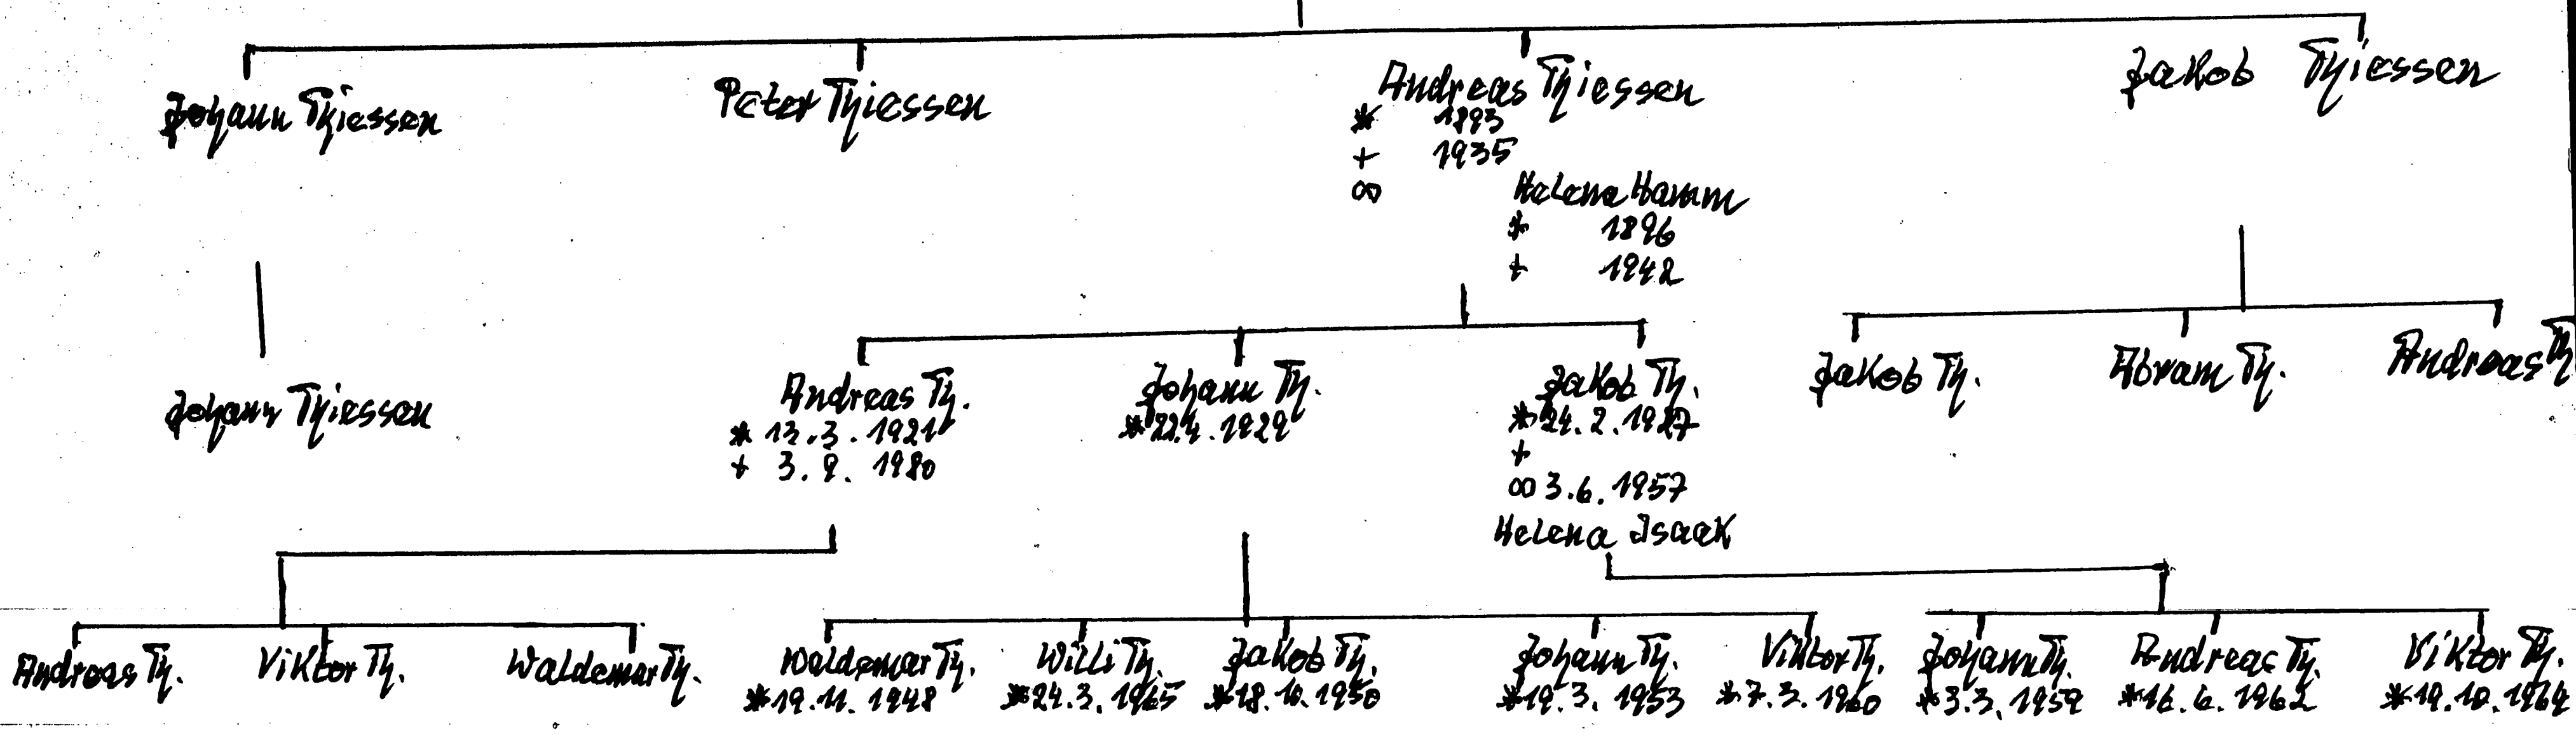 Johann Thiessen
Peter Thiessen
Andreas Thiessen
* 1893
+ 1935
∞
Helena Hamm
* 1896
+ 1942
Jakob Thiessen
Johann Thiessen
Andreas Th.
* 13.3.1921
+ 3.9.1980
Johann Th.
* 22.4.1929
Jakob Th.
* 24.2.1927
+
∞ 3.6.1957
Helena Isaak
Jakob Th.
Abram Th.
Andreas Th
Andreas Th.
Viktor Th.
Waldemar Th.
Waldemar Th.
* 19.11.1948
Willi Th.
* 24.3.1965
Jakob Th.
* 18.10.1950
Johann Th.
* 19.3.1953
Viktor Th.
* 7.3.1960
Johann Th.
* 3.3.1959
Andreas Th.
* 16.6.1962
Viktor Th.
* 19.10.1969